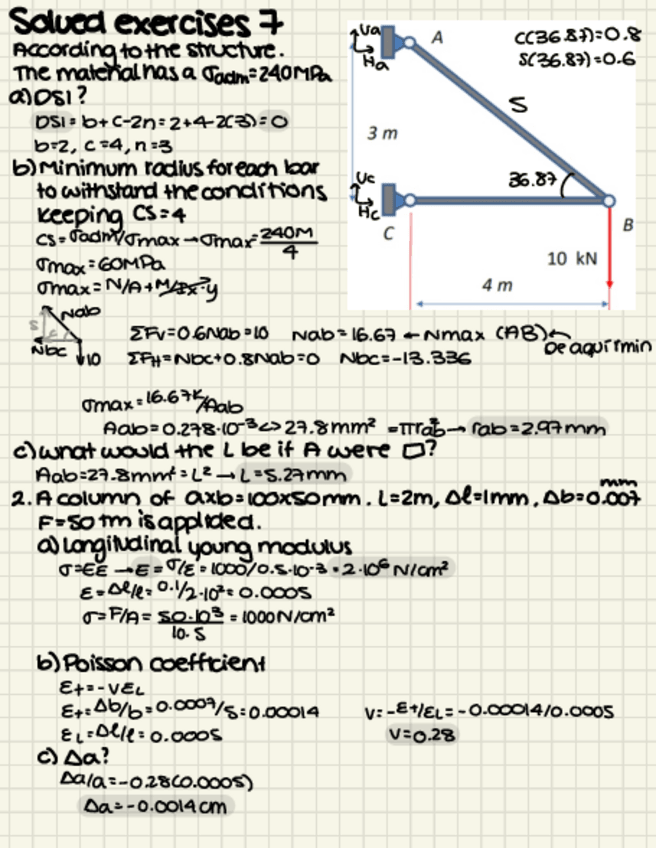 Solved exercises 7
According to the structure.
The material has a σadm=240MPa
a) DSI?
DSI = b+c-2n = 2+4-2(3) = 0
b=2, c=4, n=3
b) Minimum radius for each bar
to withstand the conditions
keeping CS=4
CS = σadm/σmax → σmax = 240M/4
σmax = 60MPa
σmax = N/A + M/Ix·y
Ua
Ha
A
C(36.87)=0.8
S(36.87)=0.6
5
3 m
36.87
Uc
Hc
C
B
10 kN
4 m
Nab
Nbc
10
ΣFv = 0.6Nab = 10 Nab = 16.67 ← Nmax (AB) ←
De aquí rmin
ΣFH = Nbc + 0.8Nab = 0 Nbc = -13.336
σmax = 16.67K/Aab
Aab = 0.278·10⁻³ <> 27.8mm² = πrab² → rab = 2.97mm
c) what would the L be if A were □?
Aab = 27.8mm² = L² → L = 5.27mm
2. A column of axb = 100x50mm. L=2m, Δl=1mm, Δb=0.007 mm
F=50 tm is applided.
a) Longitudinal young modulus
σ=EE → E = σ/ε = 1000/0.5·10⁻³ = 2·10⁶ N/cm²
ε = Δl/l = 0.1/2·10² = 0.0005
σ = F/A = 50·10³/10·5 = 1000N/cm²
b) Poisson coefficient
εt = -νεL
εt = Δb/b = 0.0007/5 = 0.00014 ν = -εt/εL = -0.00014/0.0005
εL = Δl/l = 0.0005 ν = 0.28
c) Δa?
Δa/a = -0.28(0.0005)
Δa = -0.0014cm